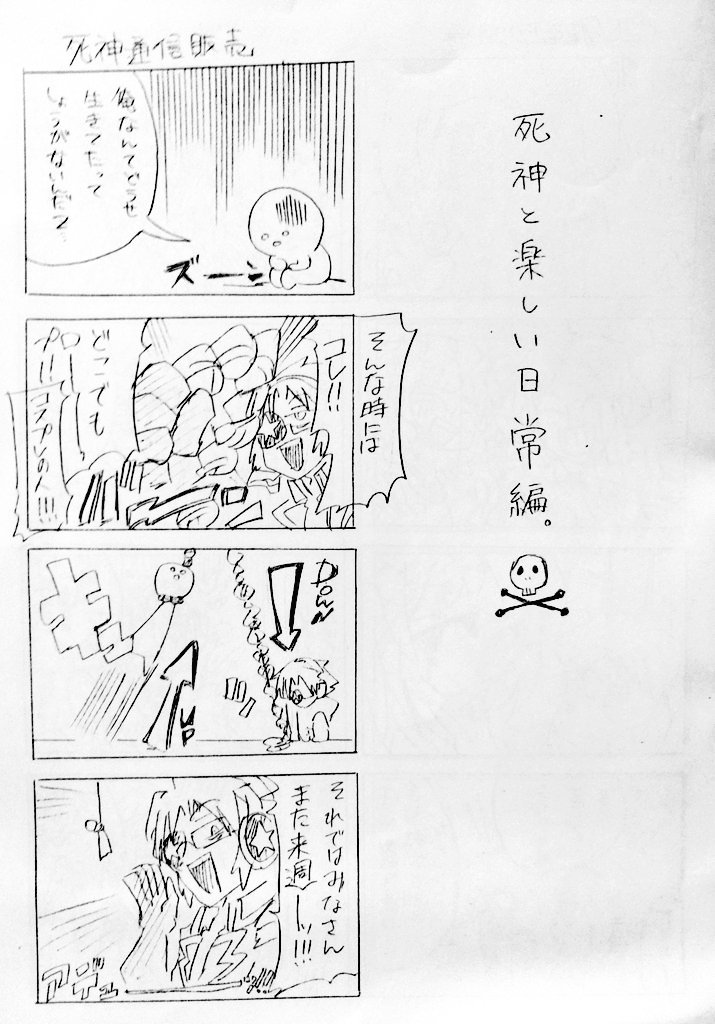 死神と楽しい日常編。
死神通信販売
俺なんてどうせ
生きてたって
しょうがないんだ…
ズーン
そんな時には
コレ!!
どこでも
DOWN
UP
それではみなさん
また来週ーッ!!!